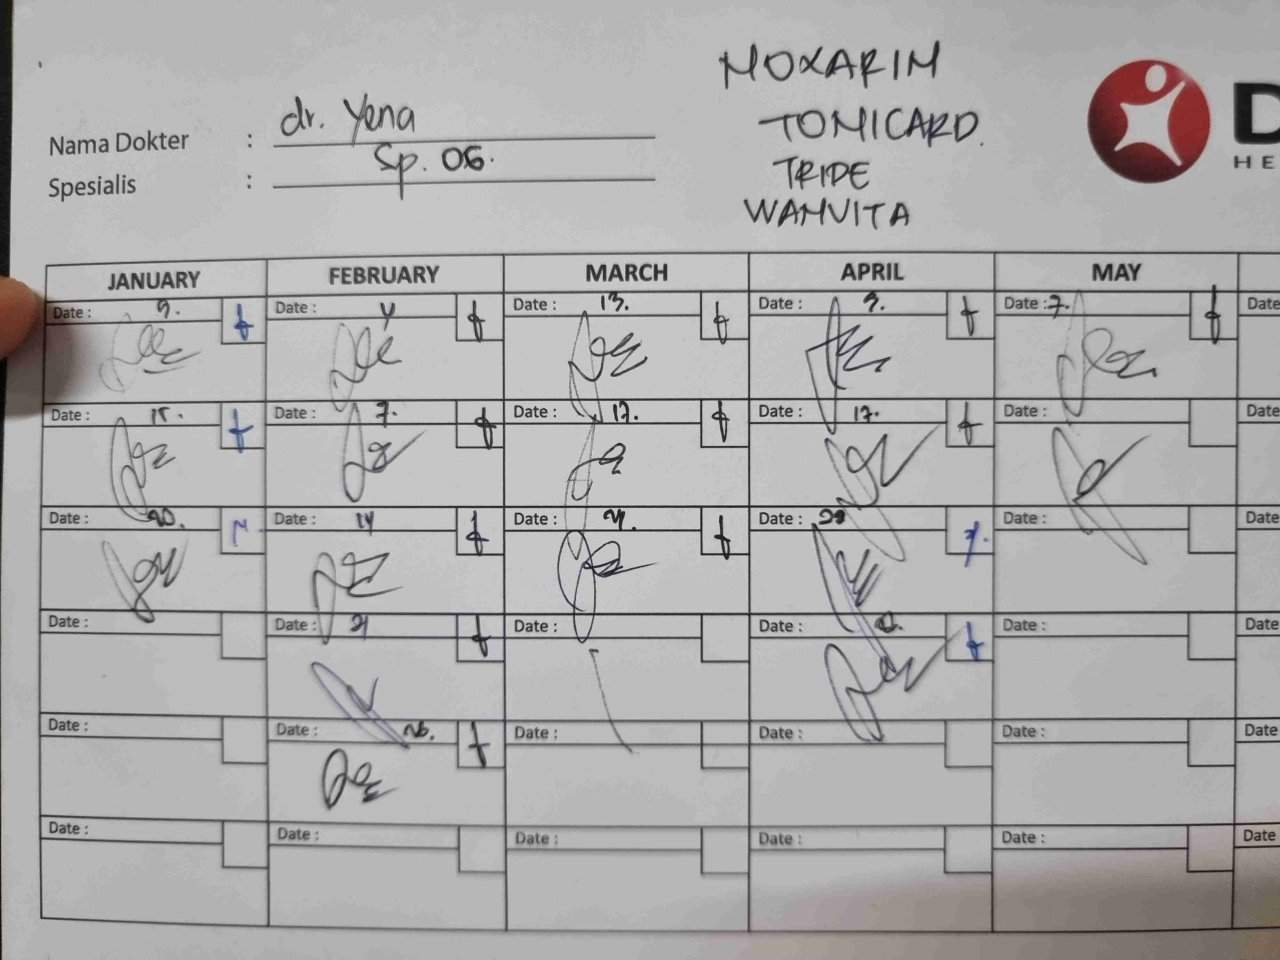 MOXARIM
TOMICARD.
TRIDE
WAMVITA
Nama Dokter : dr. Yena
Spesialis : Sp. OG.
D
HE
JANUARY FEBRUARY MARCH APRIL MAY
Date : 9. Date : 4 Date : 13. Date : 9. Date : 7. Date
Date : 15. Date : 7. Date : 17. Date : 17. Date : Date
Date : 20. Date : 14 Date : 21. Date : Date : Date
Date : Date : 21 Date : Date : Date : Date
Date : Date : 26. Date : Date : Date : Date
Date : Date : Date : Date : Date : Date